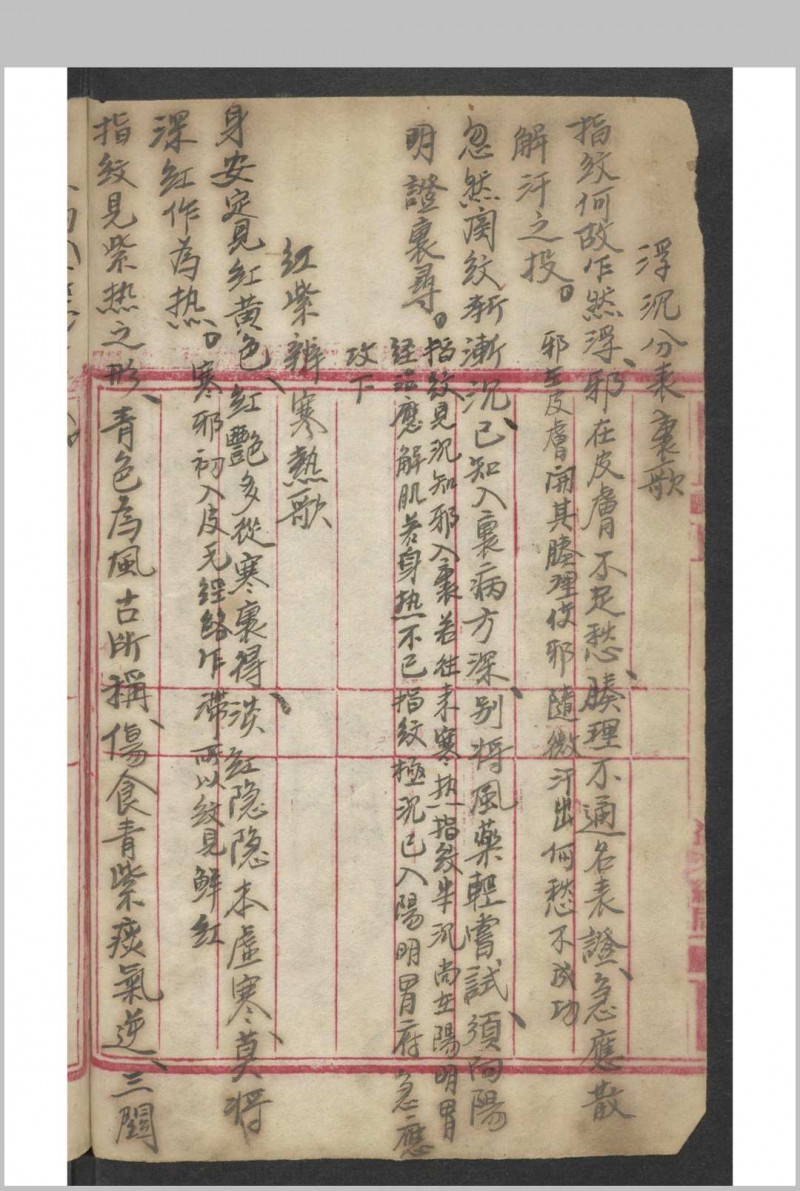 浮沉分表裏歌
指紋何故乍然浮、邪在皮膚不足愁、腠理不通名表證、急應散
解汗之投。邪在皮膚開其腠理使邪隨微汗出何愁不成功
忽然関紋漸漸沉、已知入裏病方深、别将風藥輕嘗試、須向陽
明證裏尋。指紋見沉知邪入裏若往来寒热指紋半沉尚在陽明胃
經 應解肌若身热不已指紋極沉已入陽明胃府急應
攻下
紅紫辨寒熱歌
身安定見紅黄色、紅艷多從寒裏得、淡紅隐隐本虛寒、莫将
深紅作為热。寒邪初入皮毛經絡乍滯所以紋見鮮紅
指紋見紫热之形、青色為風古所稱、傷食青紫痰氣逆、三関